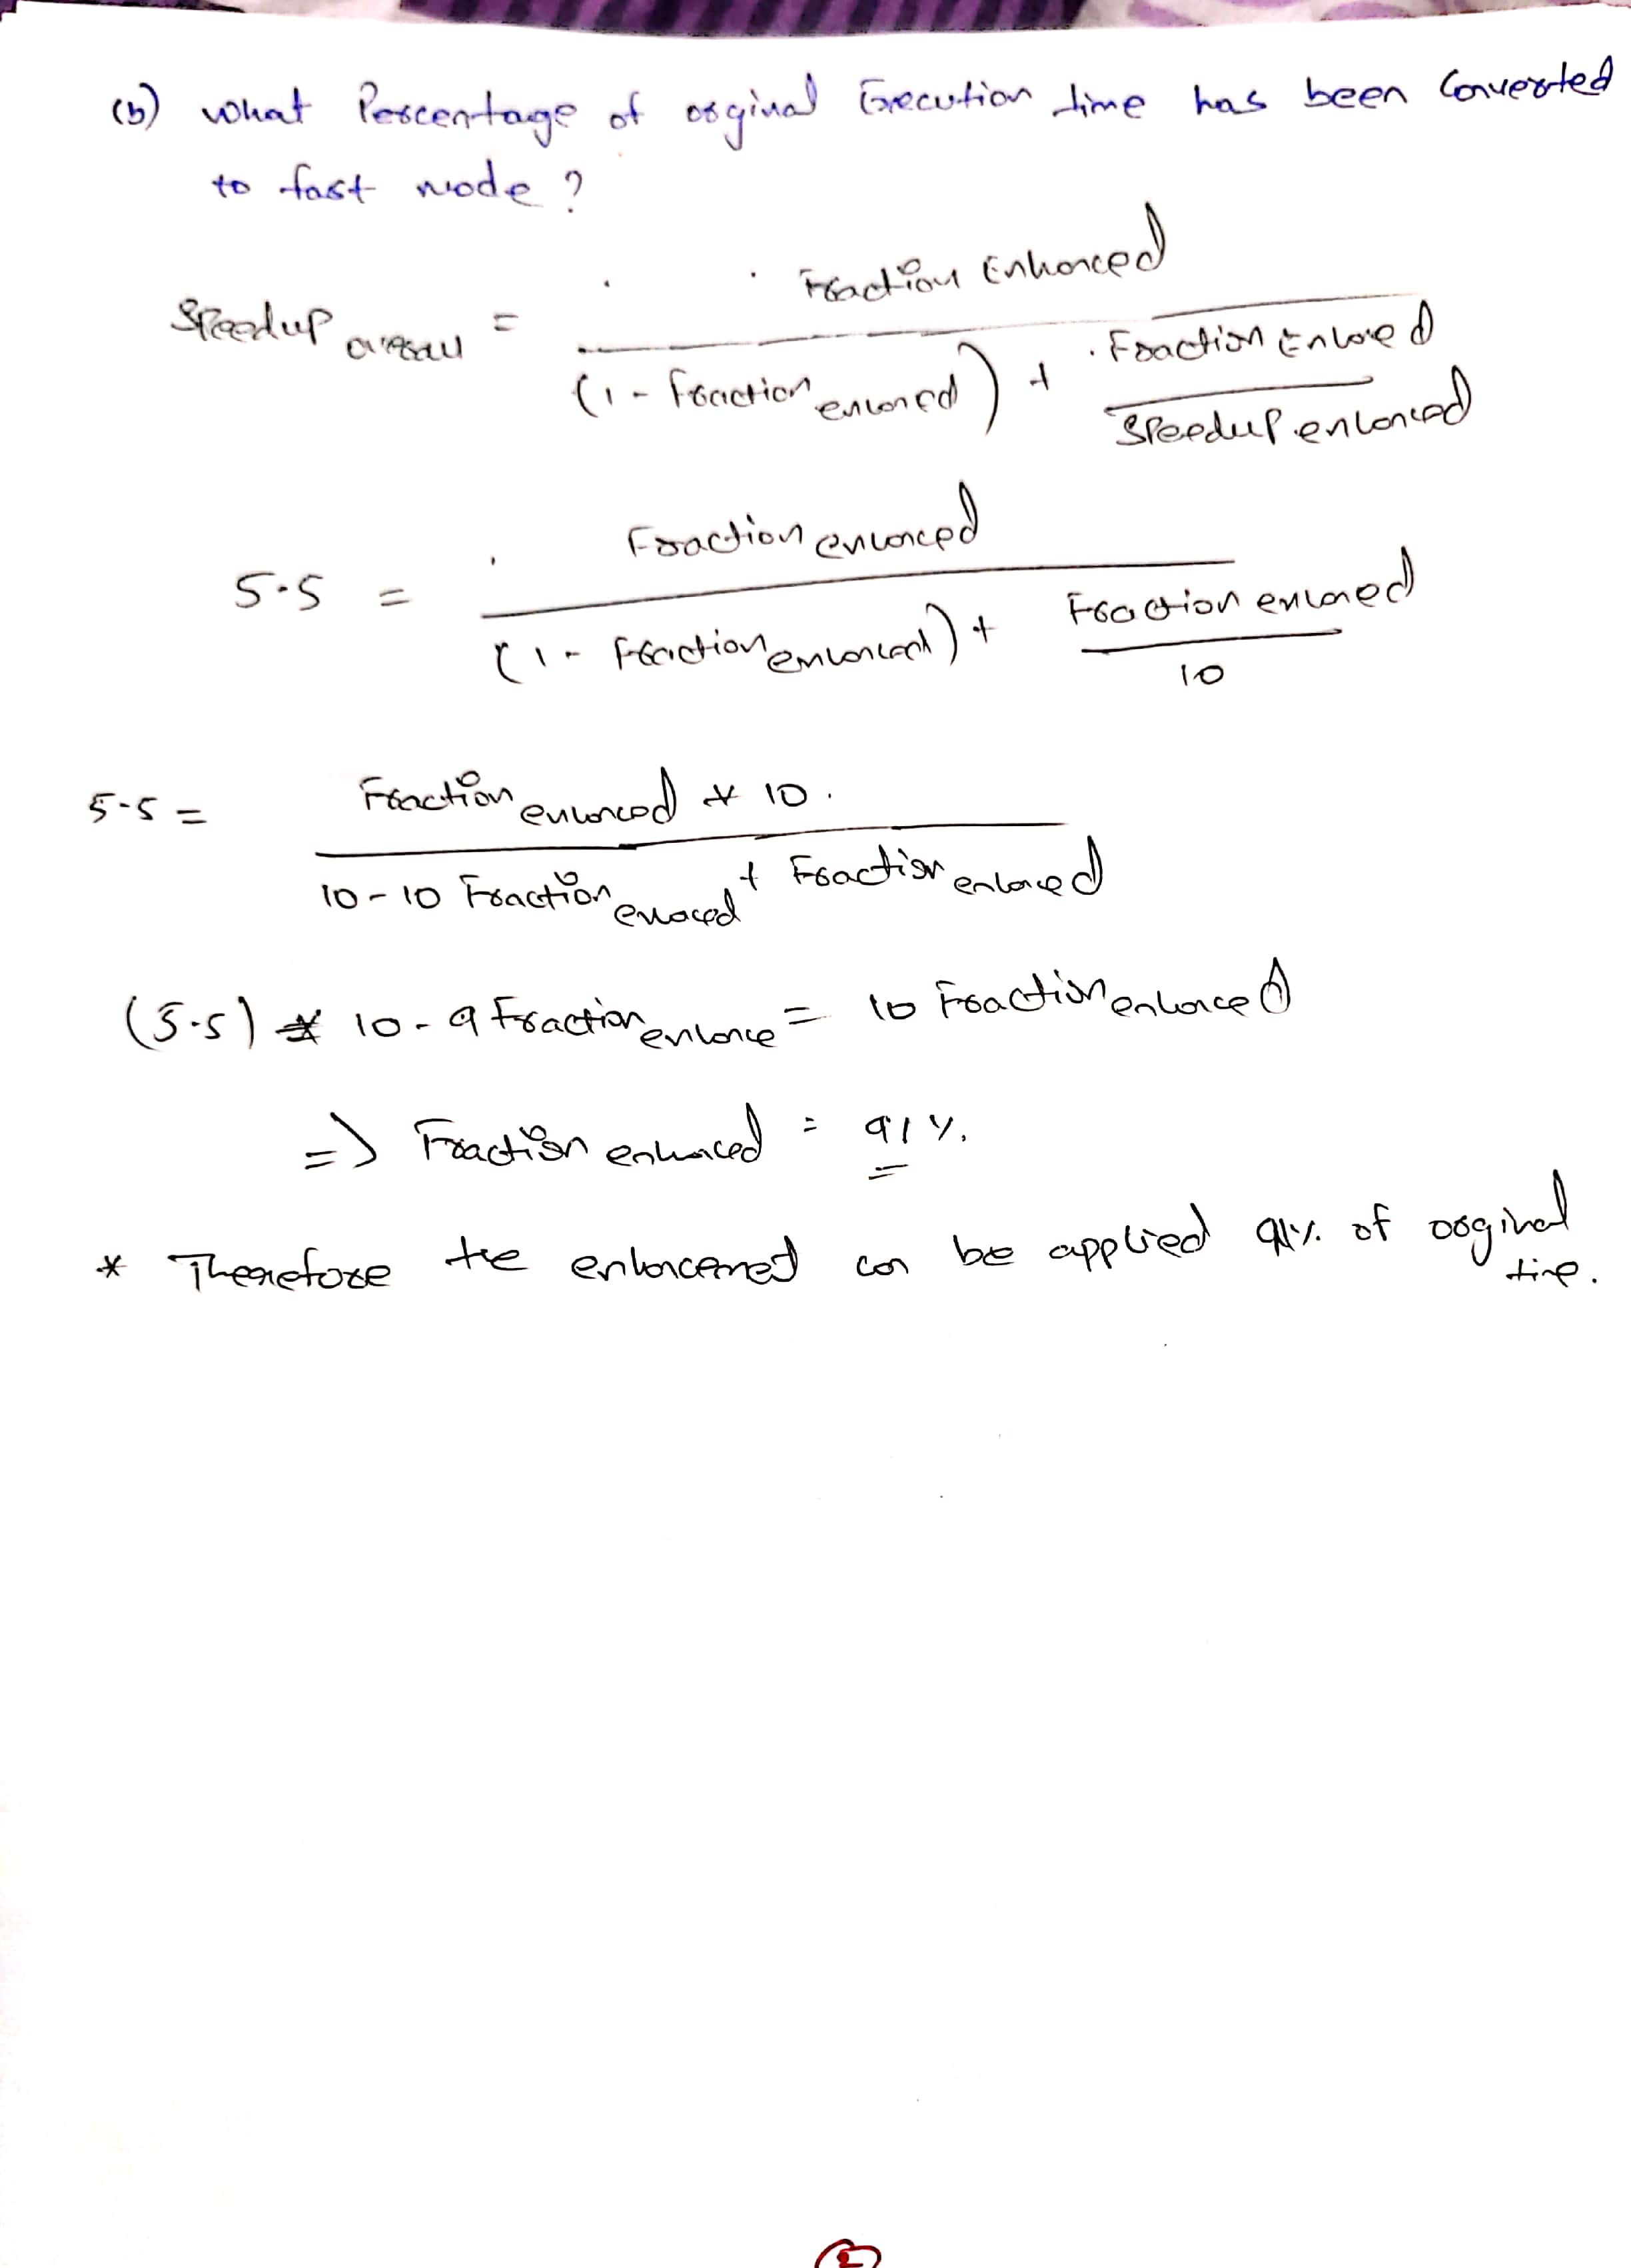 (b) What Percentage of orginal Execution time has been Converted
to fast mode ?
Speedup overall = Fraction Enhanced / (1 - Fraction enhanced) + Fraction Enhanced / Speedup enhanced
5.5 = Fraction enhanced / (1 - Fraction enhanced) + Fraction enhanced / 10
5.5 = Fraction enhanced * 10. / 10 - 10 Fraction enhaced + Fraction enhanced
(5.5) * 10 - 9 Fraction enhance = 10 Fraction enhanced
=> Fraction enhanced = 91%.
* Therefore the enhancement can be applied 91% of orginal
time.
2